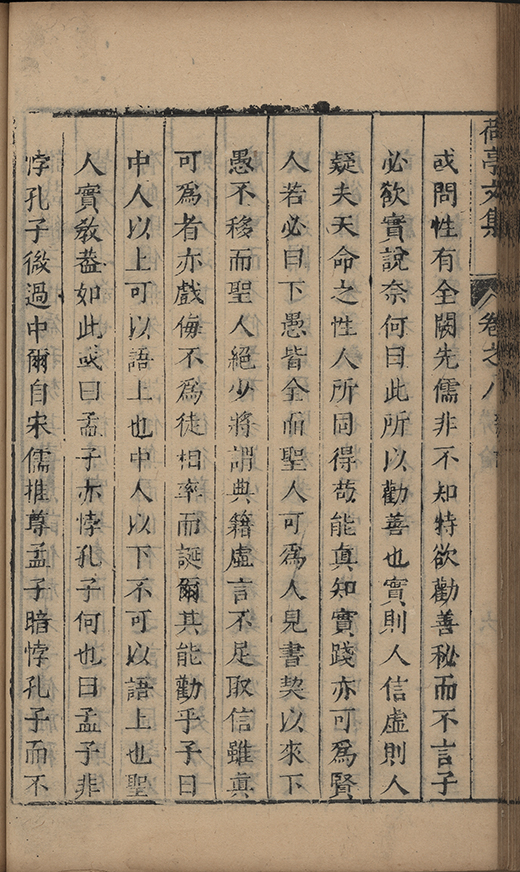 荷亭文集
卷之八
或問性有全闕先儒非不知特欲勸善秘而不言子
必欲實說奈何曰此所以勸善也實則人信虛則人
疑夫天命之性人所同得苟能真知實踐亦可爲賢
人若必曰下愚皆全而聖人可爲人見書契以來下
愚不移而聖人絕少將謂典籍虛言不足取信雖真
可爲者亦戲侮不爲徒相率而誕爾其能勸乎子曰
中人以上可以語上也中人以下不可以語上也聖
人實敎葢如此或曰孟子亦悖孔子何也曰孟子非
悖孔子微過中爾自宋儒推尊孟子暗悖孔子而不